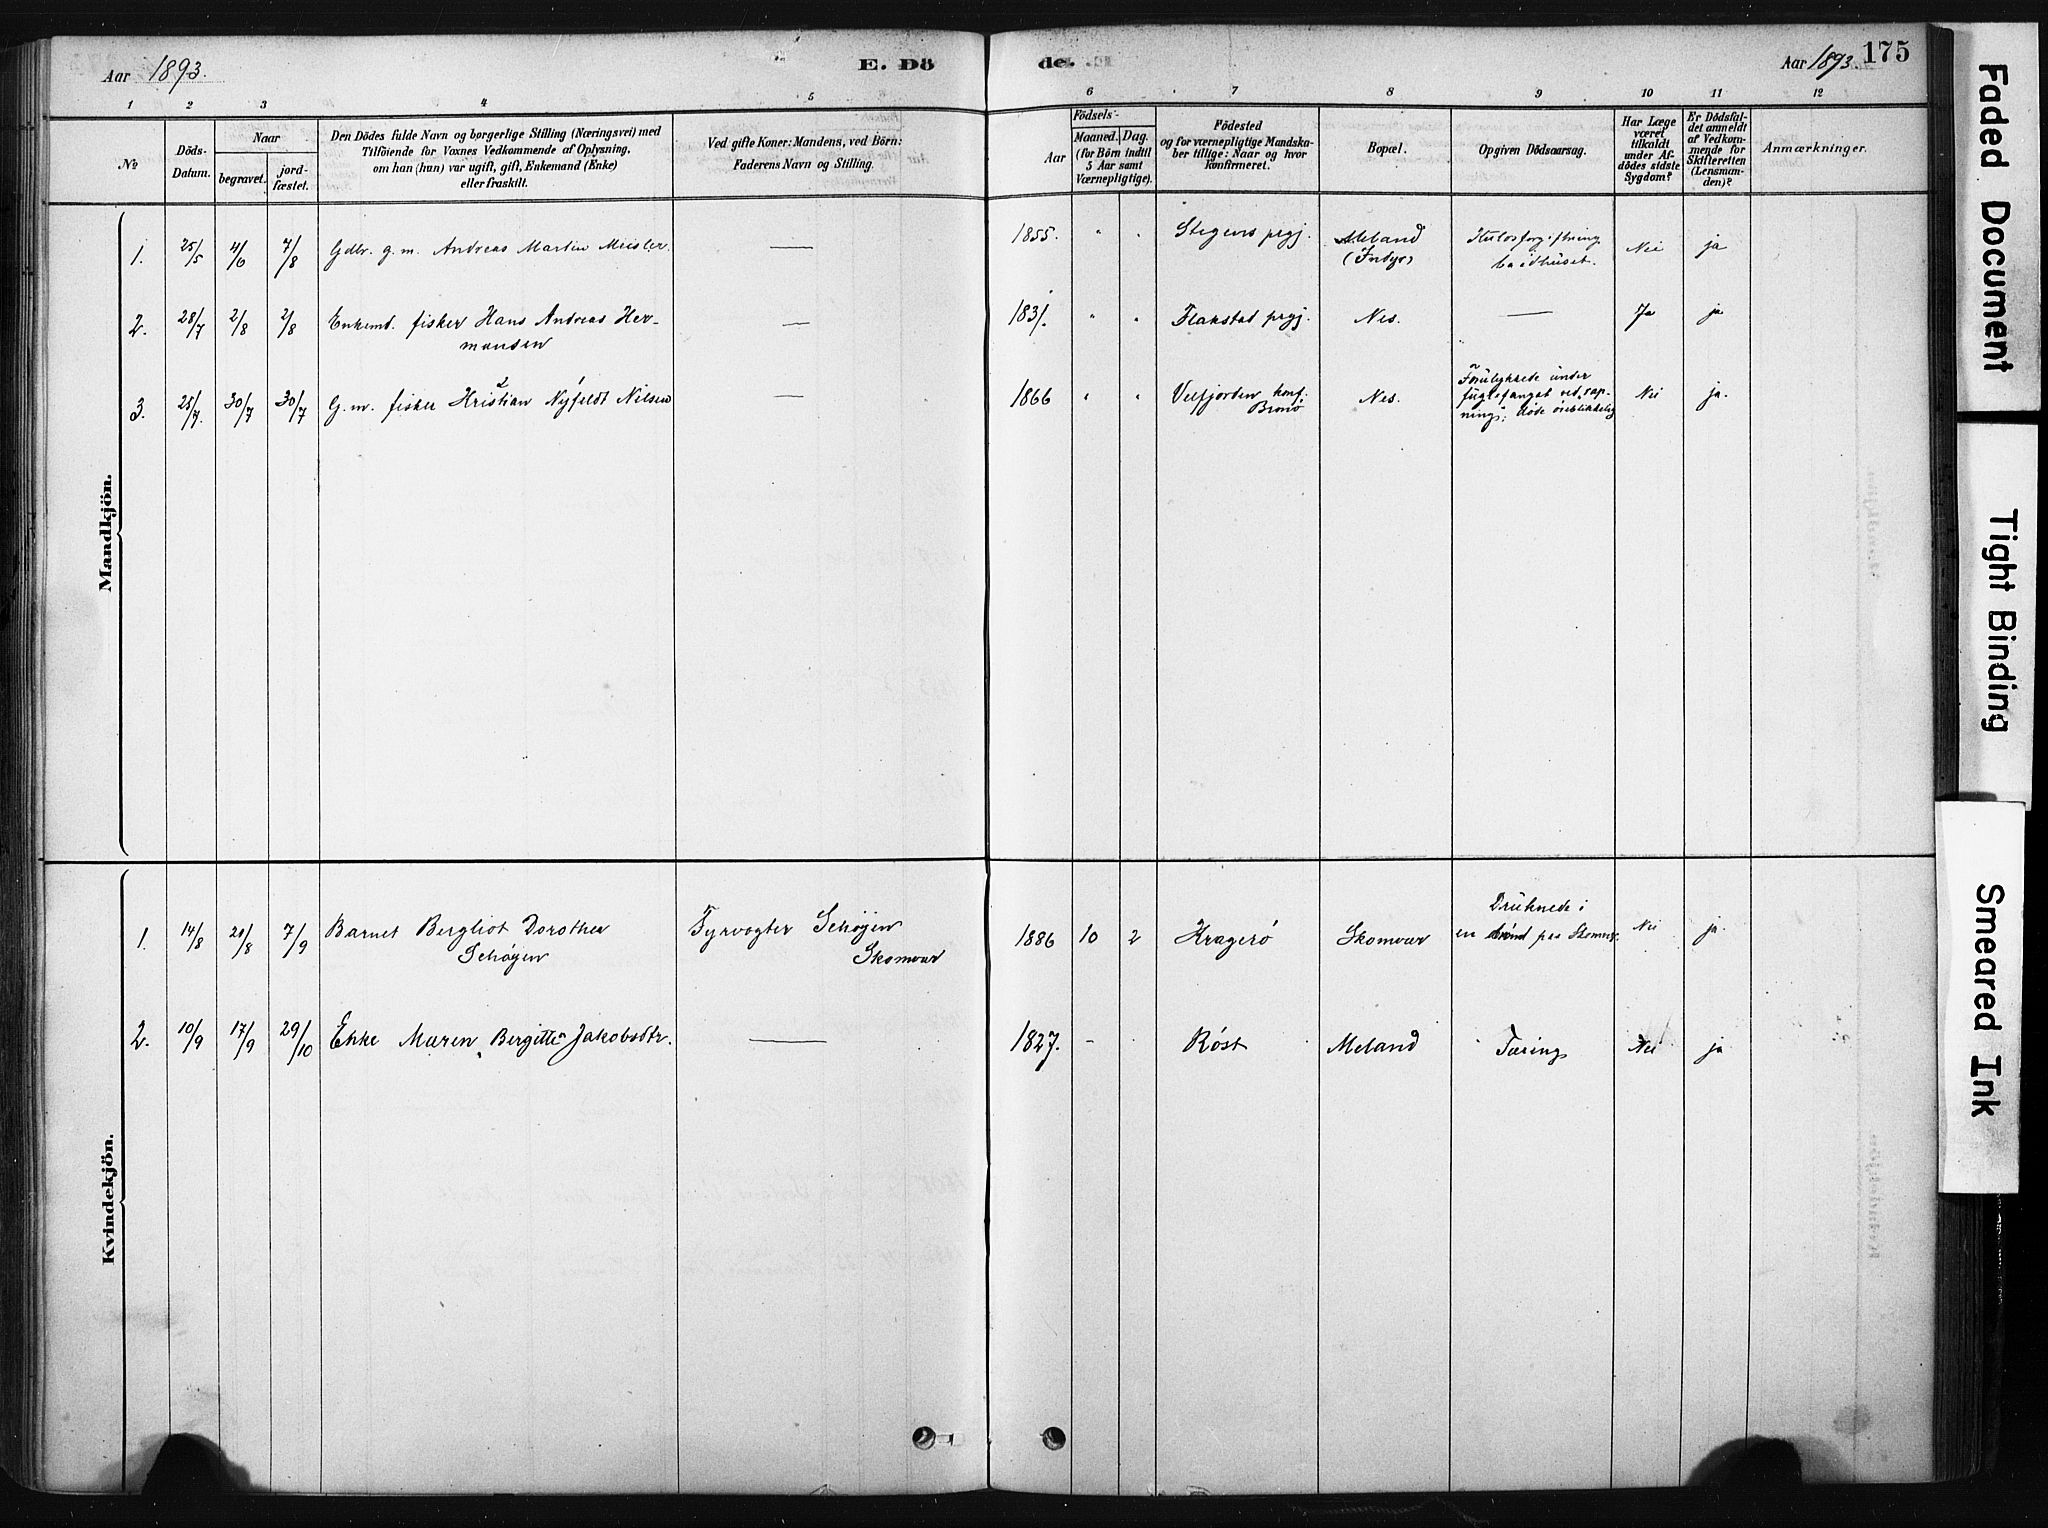 Aar 1893.
E. Dö
de.
Aar 1893.
175
1 2 3 4 5 6 7 8 9 10 11 12
No
Döds-
Datum.
Naar
begravet.
jord-
fæstet.
Den Dödes fulde Navn og borgerlige Stilling (Næringsvei) med
Tilföiende for Voxnes Vedkommende af Oplysning,
om han (hun) var ugift, gift, Enkemand (Enke)
eller fraskilt.
Ved gifte Koner: Mandens, ved Börn:
Faderens Navn og Stilling.
Födsels-
Aar
Maaned. Dag.
(for Börn indtil
5 Aar samt
Værnepligtige).
Födested
og for værnepligtige Mandska-
ber tillige: Naar og hvor
konfirmeret.
Bopæl.
Opgiven Dödsaarsag.
Har Læge
været
tilkaldt
under Af-
dödes sidste
Sygdom?
Er Dödsfal-
det anmeldt
af Vedkom-
mende for
Skifteretten
(Lensman-
den)?
Anmærkninger.
Mandkjön.
1. 25/5 4/6 7/8 Gdbr. g. m. Andreas Martin Meisler. — 1855. " " Stegens prgj. Meland
(Indyr)
Kulosforgiftning
baadhuset.
Nei ja
2. 28/7 2/8 2/8 Enkemd. fisker Hans Andreas Her-
mansen
— 1831. " " Flakstad prgj. Nes. — Ja ja
3. 25/7. 30/7 30/7 G. m. fisker Kristian Nyfeldt Nilsen — 1866 " " Velfjorden konf:
Brønø
Nes.
Forulykkede under
fuglefangst ved "rap-
ning"; døde øieblikkelig
Nei ja.
Kvindekjön.
1. 14/8 20/8 7/9 Barnet Bergliot Dorothea
Schøyen
Fyrvogter Schøyen
Skomvær
1886 10 2 Kragerø Skomvær
Druknede i
en brønd paa Skomvær.
Nei ja.
2. 10/9 17/9 29/10 Enke Maren Bergitte Jakobsdtr. — 1827. - Røst Meland Tæring Nei ja
Faded Document
Tight Binding
Smeared Ink